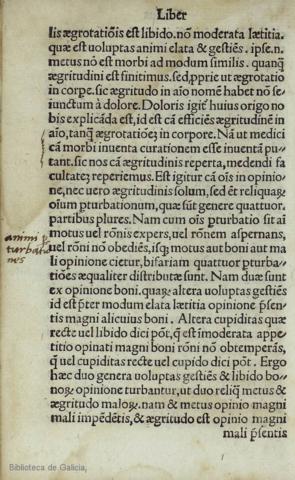 Liber
lis ægrotatiõis est libido. nõ moderata lætitia.
quæ est uoluptas animi elata & gestiẽs. ipse. n.
metus nõ est morbi ad modum similis. quanq̃
ægritudini est finitimus. sed, pprie ut ægrotatio
in corpe. sic ægritudo in aĩo nomẽ habet nõ se/
iunctum à dolore. Doloris igit̃ huius origo no
bis explicãda est, id est cã efficiẽs ægritudinẽ in
aĩo, tanq̃ ægrotatiõeʒ in corpore. Nã ut medici
cã morbi inuenta curationem esse inuentã pu/
tant. sic nos cã ægritudinis reperta, medendi fa
cultateʒ reperiemus. Est igitur cã oĩs in opinio/
ne, nec uero ægritudinis solum, sed et̃ reliquaꝝ
oĩum pturbationum, quæ sũt genere quattuor.
partibus plures. Nam cum oĩs pturbatio sit aĩ
motus uel rõnis expers, uel rõnem aspernans,
uel rõni nõ obediẽs, isq; motus aut boni aut ma
li opinione cietur, bifariam quattuor pturba/
tiões æqualiter distributæ sunt. Nam duæ sunt
ex opinione boni. quaꝝ altera uoluptas gestiẽs
id est p̃ter modum elata lætitia opinione p̃sen/
tis magni alicuius boni. Altera cupiditas quæ
recte uel libido dici põt, q̃ est ĩmoderata appe/
titio opinati magni boni rõni nõ obtemperãs,
q̃ uel cupiditas recte uel cupido dici põt. Ergo
hæc duo genera uoluptas gestiẽs & libido bo/
noꝝ opinione turbantur, ut duo reliq̃ metus &
ægritudo maloꝝ. nam & metus opinio magni
mali impẽdẽtis, & ægritudo est opinio magni
mali p̃sentis
animi p
turbatio
nes
Biblioteca de Galicia,